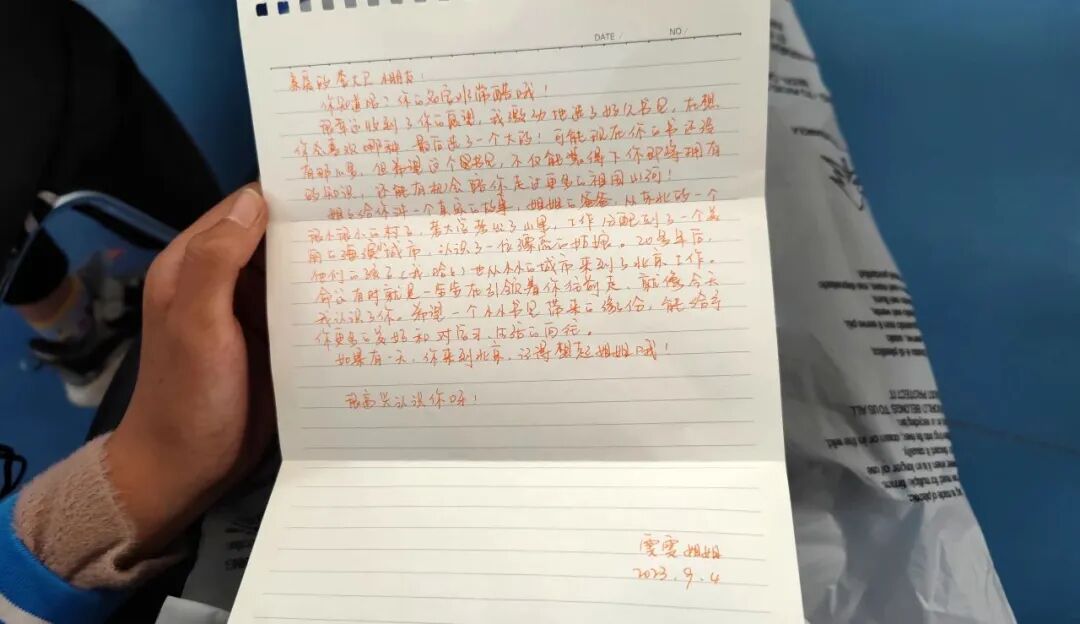 DATE / NO /
亲爱的李大卫小朋友：
你知道吗？你的名字非常酷哦！
很幸运收到了你的愿望，我激动地选了好久书包，在想
你会喜欢哪种，最后选了一个大的！可能现在你的书还没
有那么多，但希望这个书包，不仅能装得下你即将拥有
的知识，还能有机会陪你走过更多的祖国山河！
姐姐给你讲一个真实的故事，姐姐的爸爸，从东北的一个
很小很小的村子，考大学考出了山里，工作分配到了一个美
丽的海滨城市，认识了一位漂亮的姑娘。20多年后，
他们的孩子（我啦）也从小小的城市来到了北京工作。
命运有时就是一步步在引领着你往前走，就像今天
我认识了你。希望一个小小书包带来的缘份，能给予
你更多的美好和对学习、生活的向往。
如果有一天，你来到北京，记得想起姐姐哦！
很高兴认识你呀！
雯雯姐姐
2023.9.4